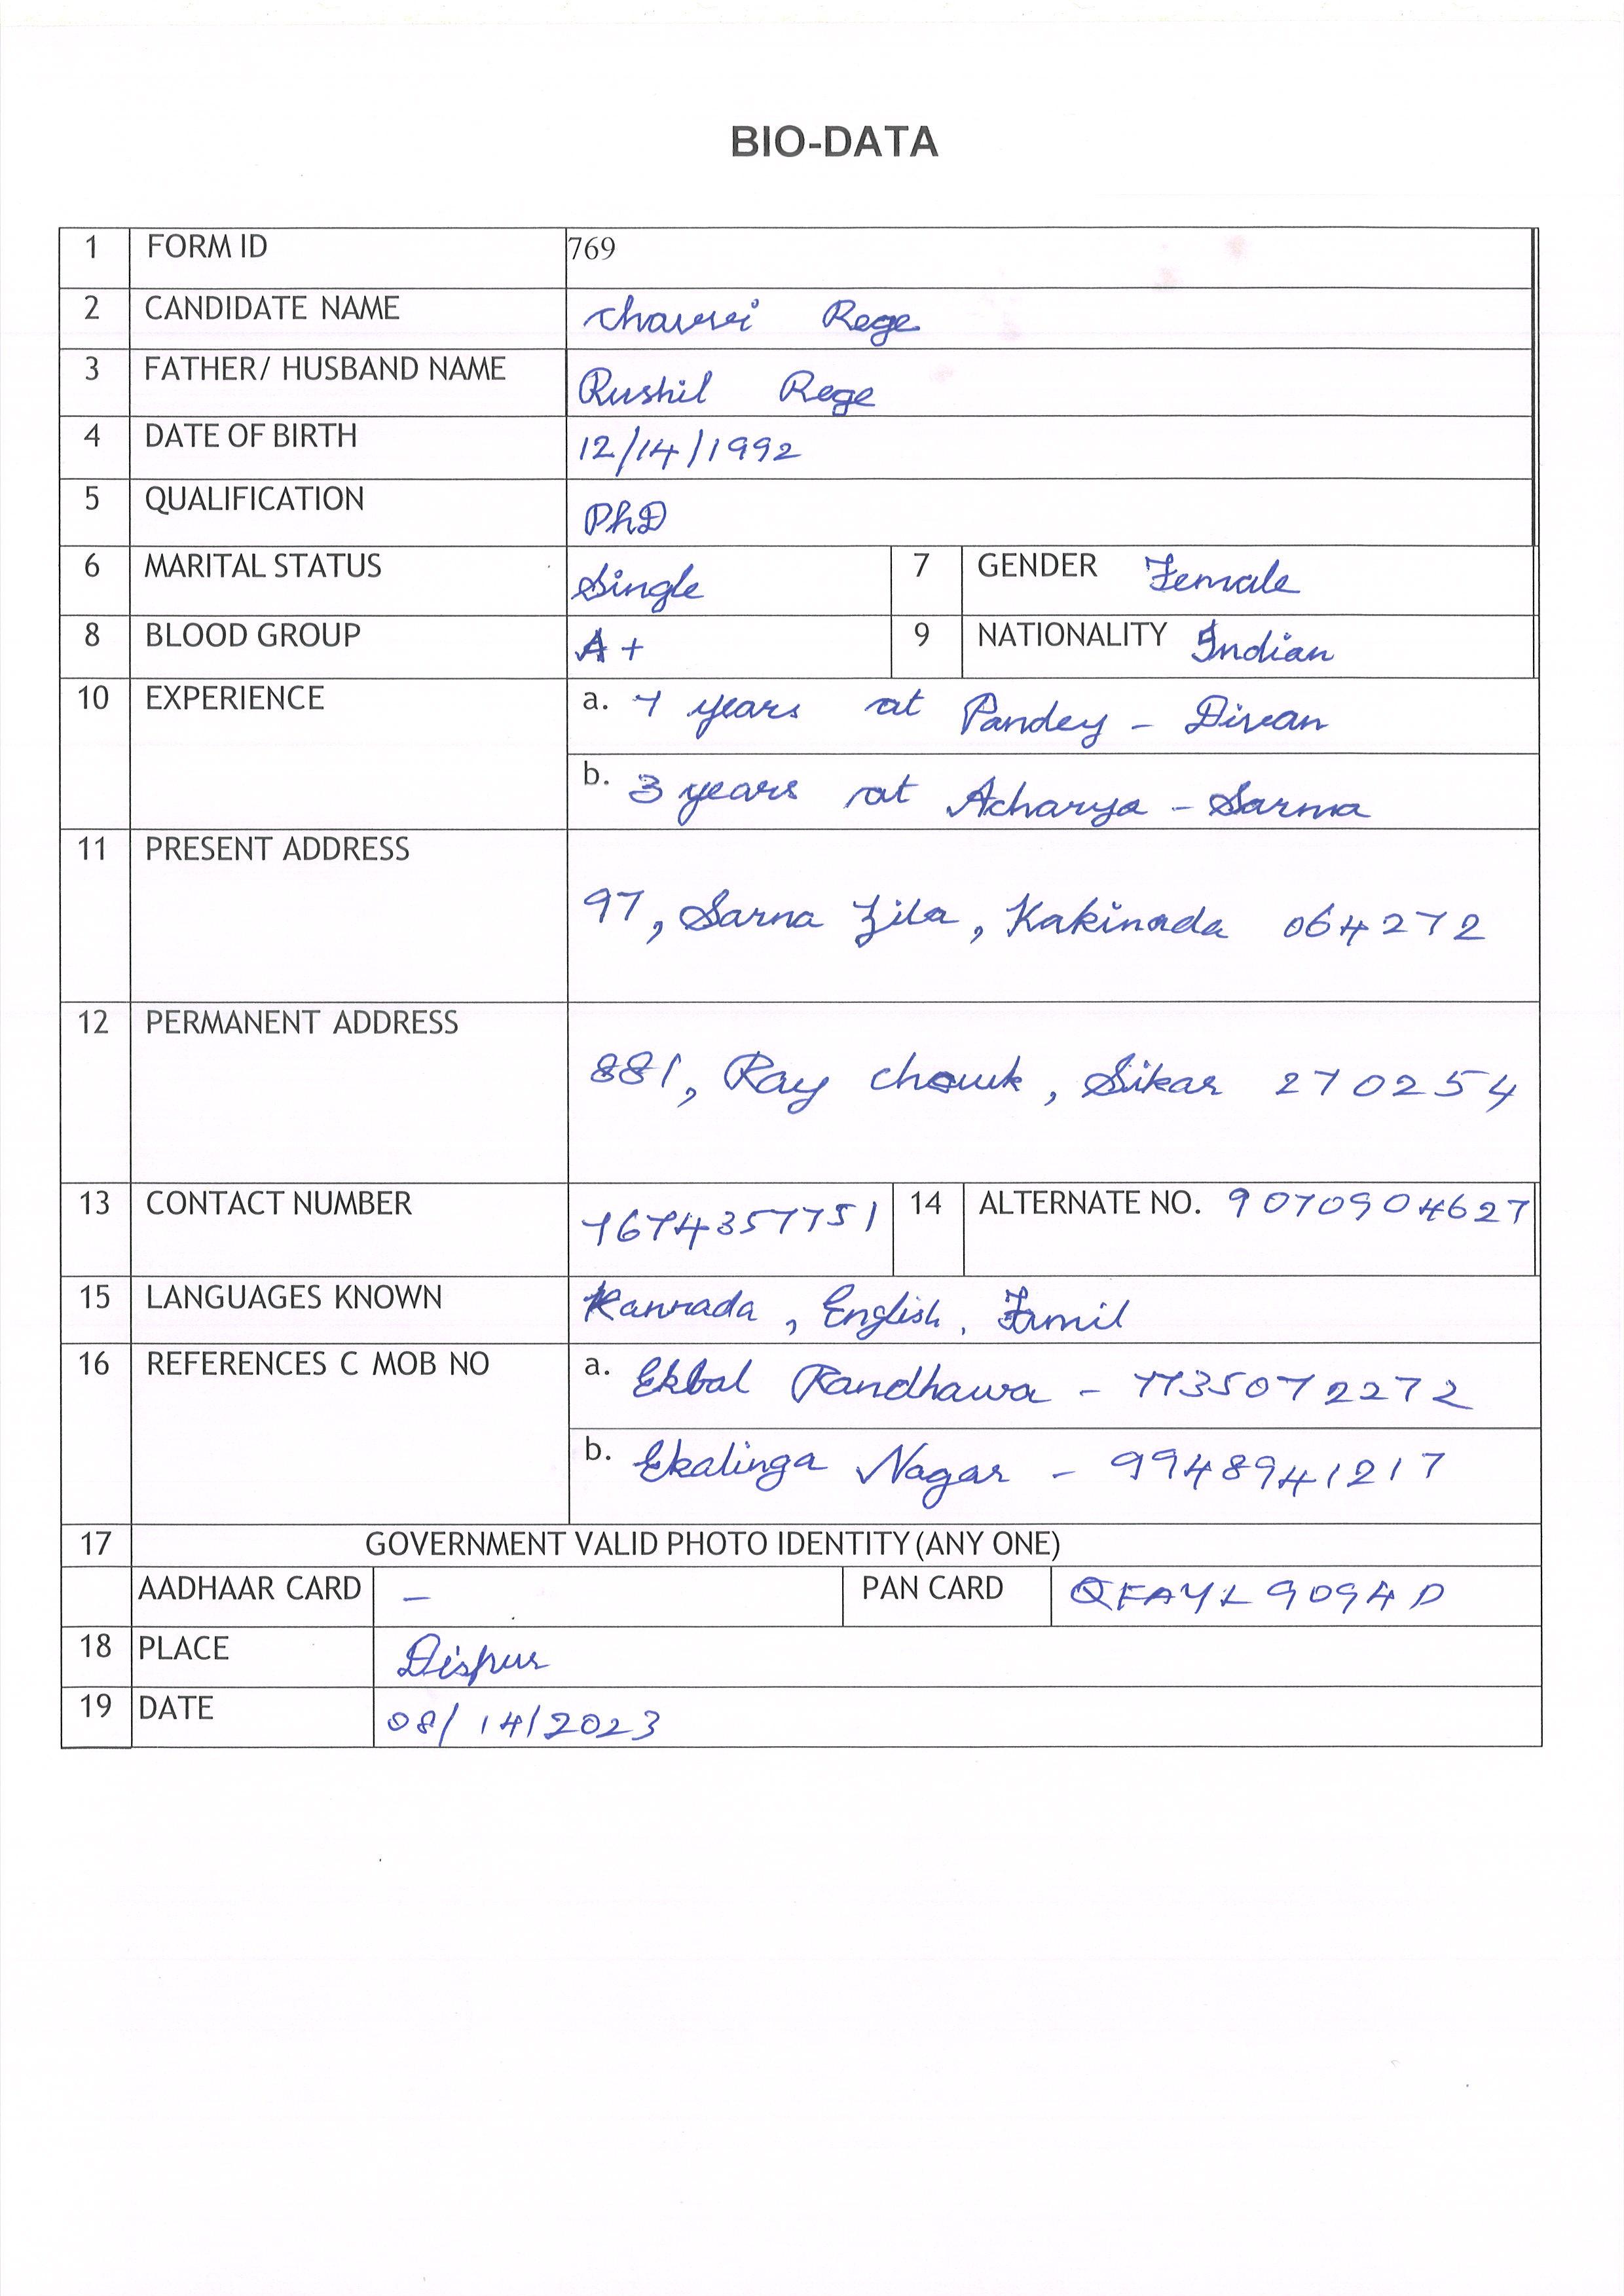 BIO-DATA
1 FORM ID 769
2 CANDIDATE NAME Charvi Rege
3 FATHER/ HUSBAND NAME Rushil Rege
4 DATE OF BIRTH 12/14/1992
5 QUALIFICATION PhD
6 MARITAL STATUS Single 7 GENDER Female
8 BLOOD GROUP A+ 9 NATIONALITY Indian
10 EXPERIENCE a. 7 years at Pandey - Divan
b. 3 years at Acharya - Sarma
11 PRESENT ADDRESS
97, Sarna Zila, Kakinada 064272
12 PERMANENT ADDRESS
881, Ray chowk, Sikar 270254
13 CONTACT NUMBER 7674357751 14 ALTERNATE NO. 9070904627
15 LANGUAGES KNOWN Kannada, English, Tamil
16 REFERENCES C MOB NO a. Ekbal Randhawa - 7735072272
b. Ekalinga Nagar - 9948941217
17 GOVERNMENT VALID PHOTO IDENTITY (ANY ONE)
AADHAAR CARD - PAN CARD QFAYL9094D
18 PLACE Dispur
19 DATE 08/14/2023